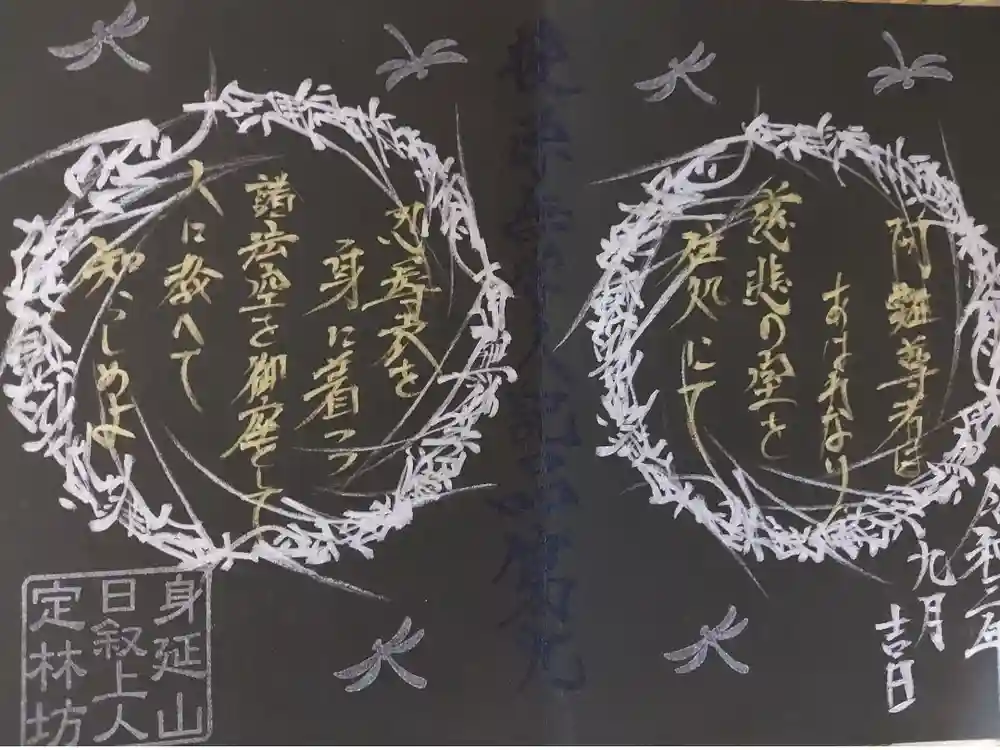 令和二年
九月
吉日
阿難尊者は
あはれなり
慈悲の室を
住処にて
授学無学人記品第九
忍辱衣を
身に着つつ
諸法空を御座として
人に教へて
知らしめよ
身延山
日叙上人
定林坊